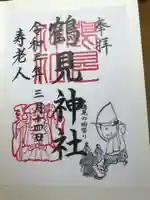 奉拝
鶴見神社
令和二年三月十四日
寿老人